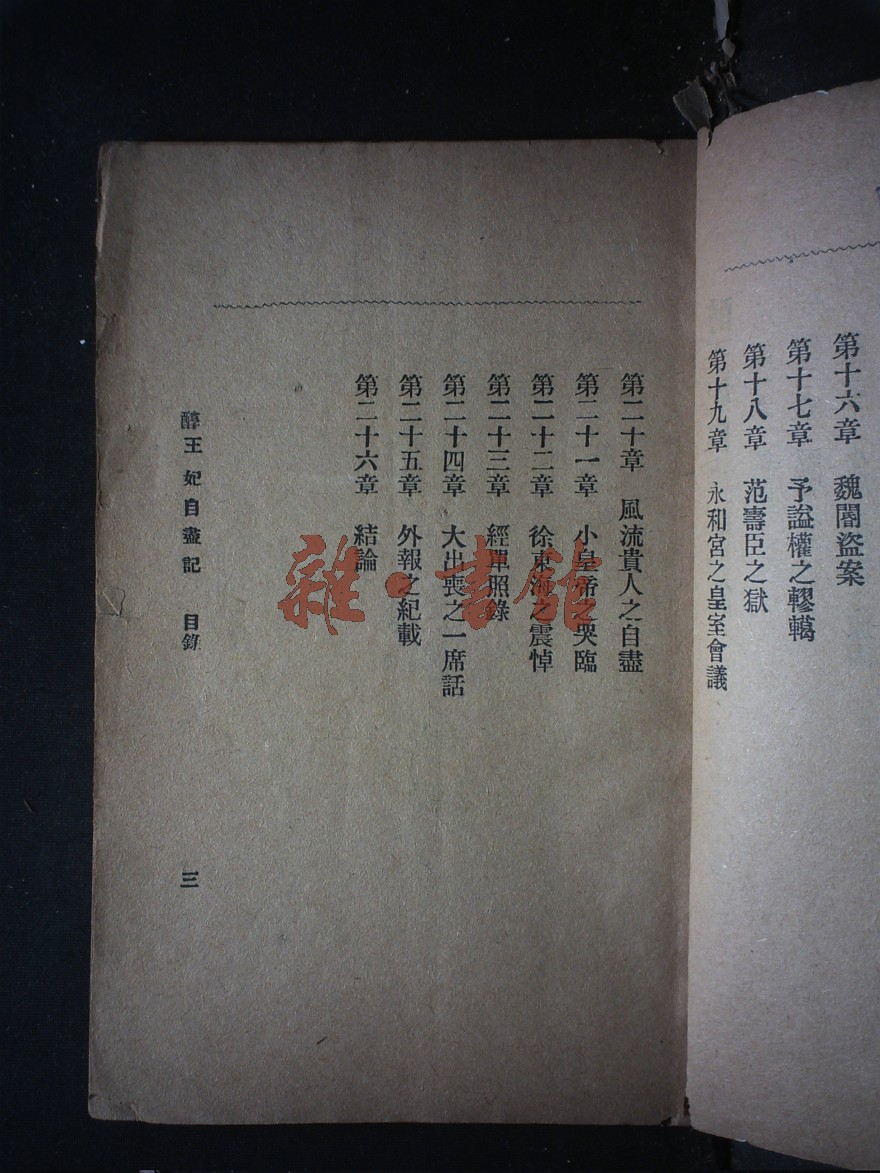 第十六章　魏閹盜案
第十七章　予謚權之轇轕
第十八章　范壽臣之獄
第十九章　永和宮之皇室會議
第二十章　風流貴人之自盡
第二十一章　小皇帝之哭臨
第二十二章　徐東海之震悼
第二十三章　經單照錄
第二十四章　大出喪之一席話
第二十五章　外報之紀載
第二十六章　結論
醇王妃自盡記　目錄
三
雜·書館